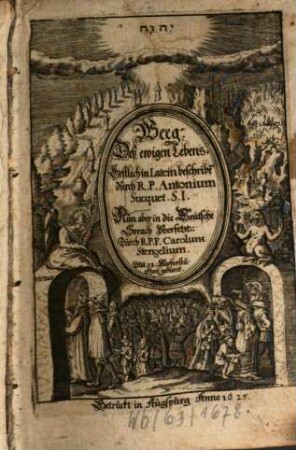 יהוה
Weeg
Deß ewigen Lebens.
Erstlich in Latein beschribē
Durch R. P. Antonium
Sucquet. S.I.
Nun aber in die Teutsche
Sprach Vbersetzt:
Durch R.P.F. Carolum
Stengelium.
Mit 32 Kupferstü-
Getruckt in Augspurg Anno 1625.